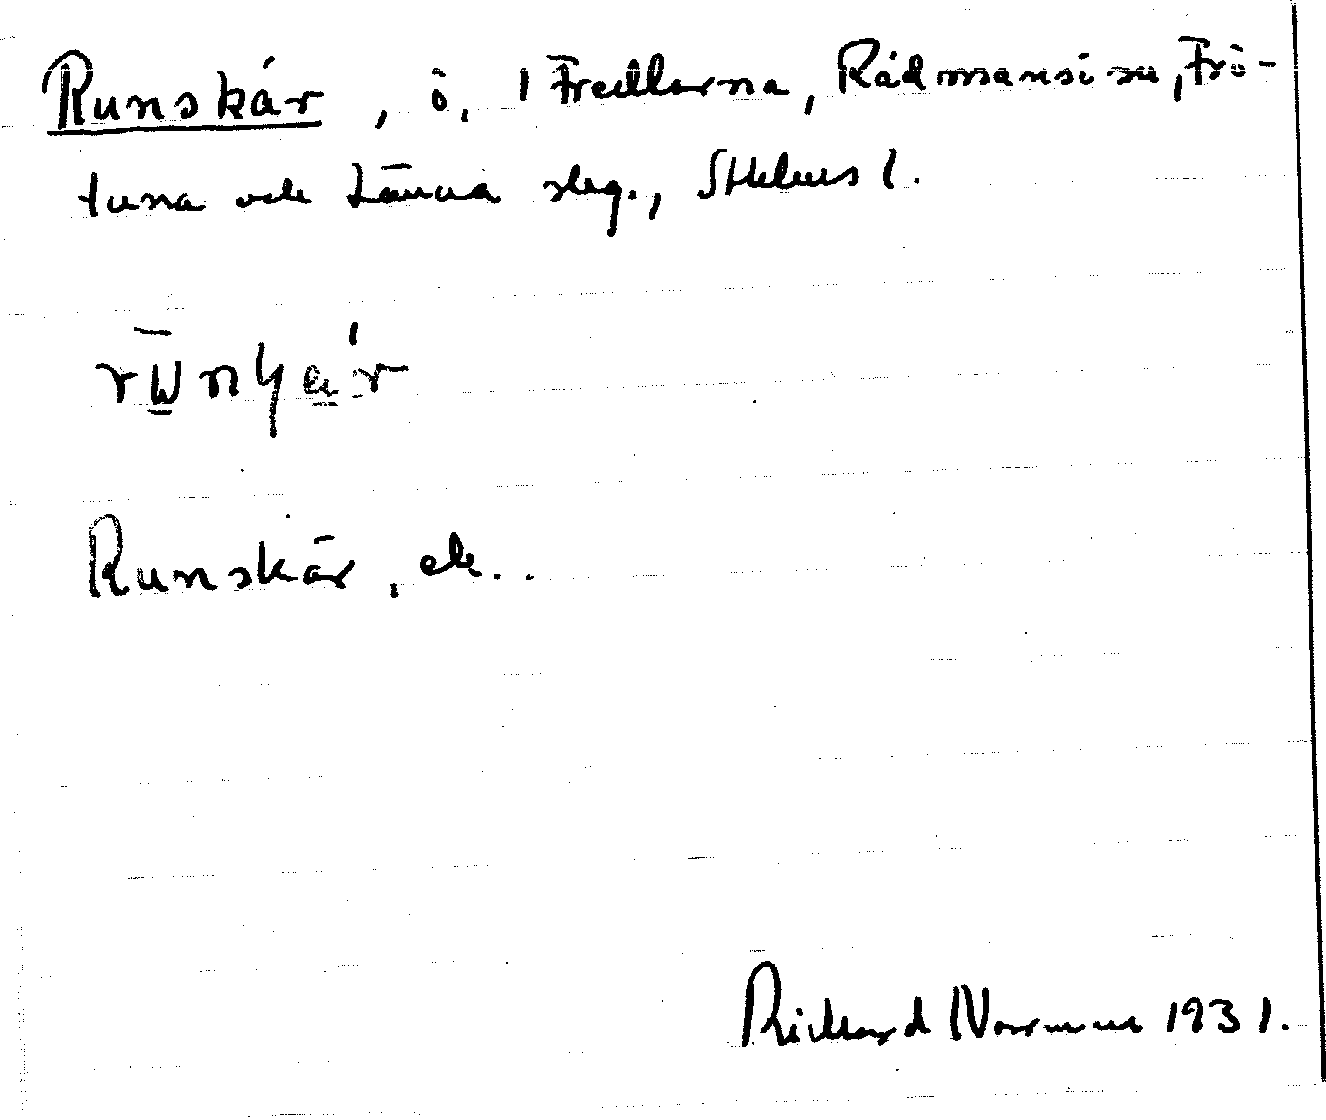 Runskär, ö, i Fredlarna, Rådmansö sn, Frö-
tuna och Länna skg., Sthlms l.
Runskär, ek..
Rickard Norrman 1931.